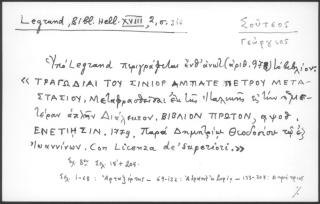 Legrand, Bibl. Hell. XVIII, 2, σ. 316
Σοῦτσος
Γεώργιος
Ὑπὸ Legrand περιγράφεται ἐνθ' ἀνωτ. (ἀριθ. 978) τὸ βιβλίον:
« ΤΡΑΓΩΔΙΑΙ ΤΟΥ ΣΙΝΙΟΡ ΑΜΠΑΤΕ ΠΕΤΡΟΥ ΜΕΤΑ-
ΣΤΑΣΙΟΥ, Μεταφρασθεῖσαι ἐκ τῆς Ἰταλικῆς εἰς τὴν ἡμε-
τέραν ἁπλῆν Διάλεκτον. ΒΙΒΛΙΟΝ ΠΡΩΤΟΝ, αψοθ.
ΕΝΕΤΙΗΣΙΝ. 1779. Παρὰ Δημητρίῳ Θεοδοσίου τῷ ἐξ
Ἰωαννίνων. Con Licenza de' superiori. »
Εἰς 8ον
Σελ. 1-68 : Ἀρταξέρξης - 69-132 :